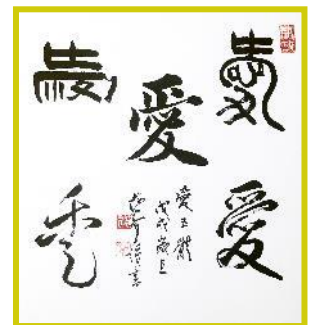 愛
愛
愛
愛
愛
愛五體
戊戌歲旦
書